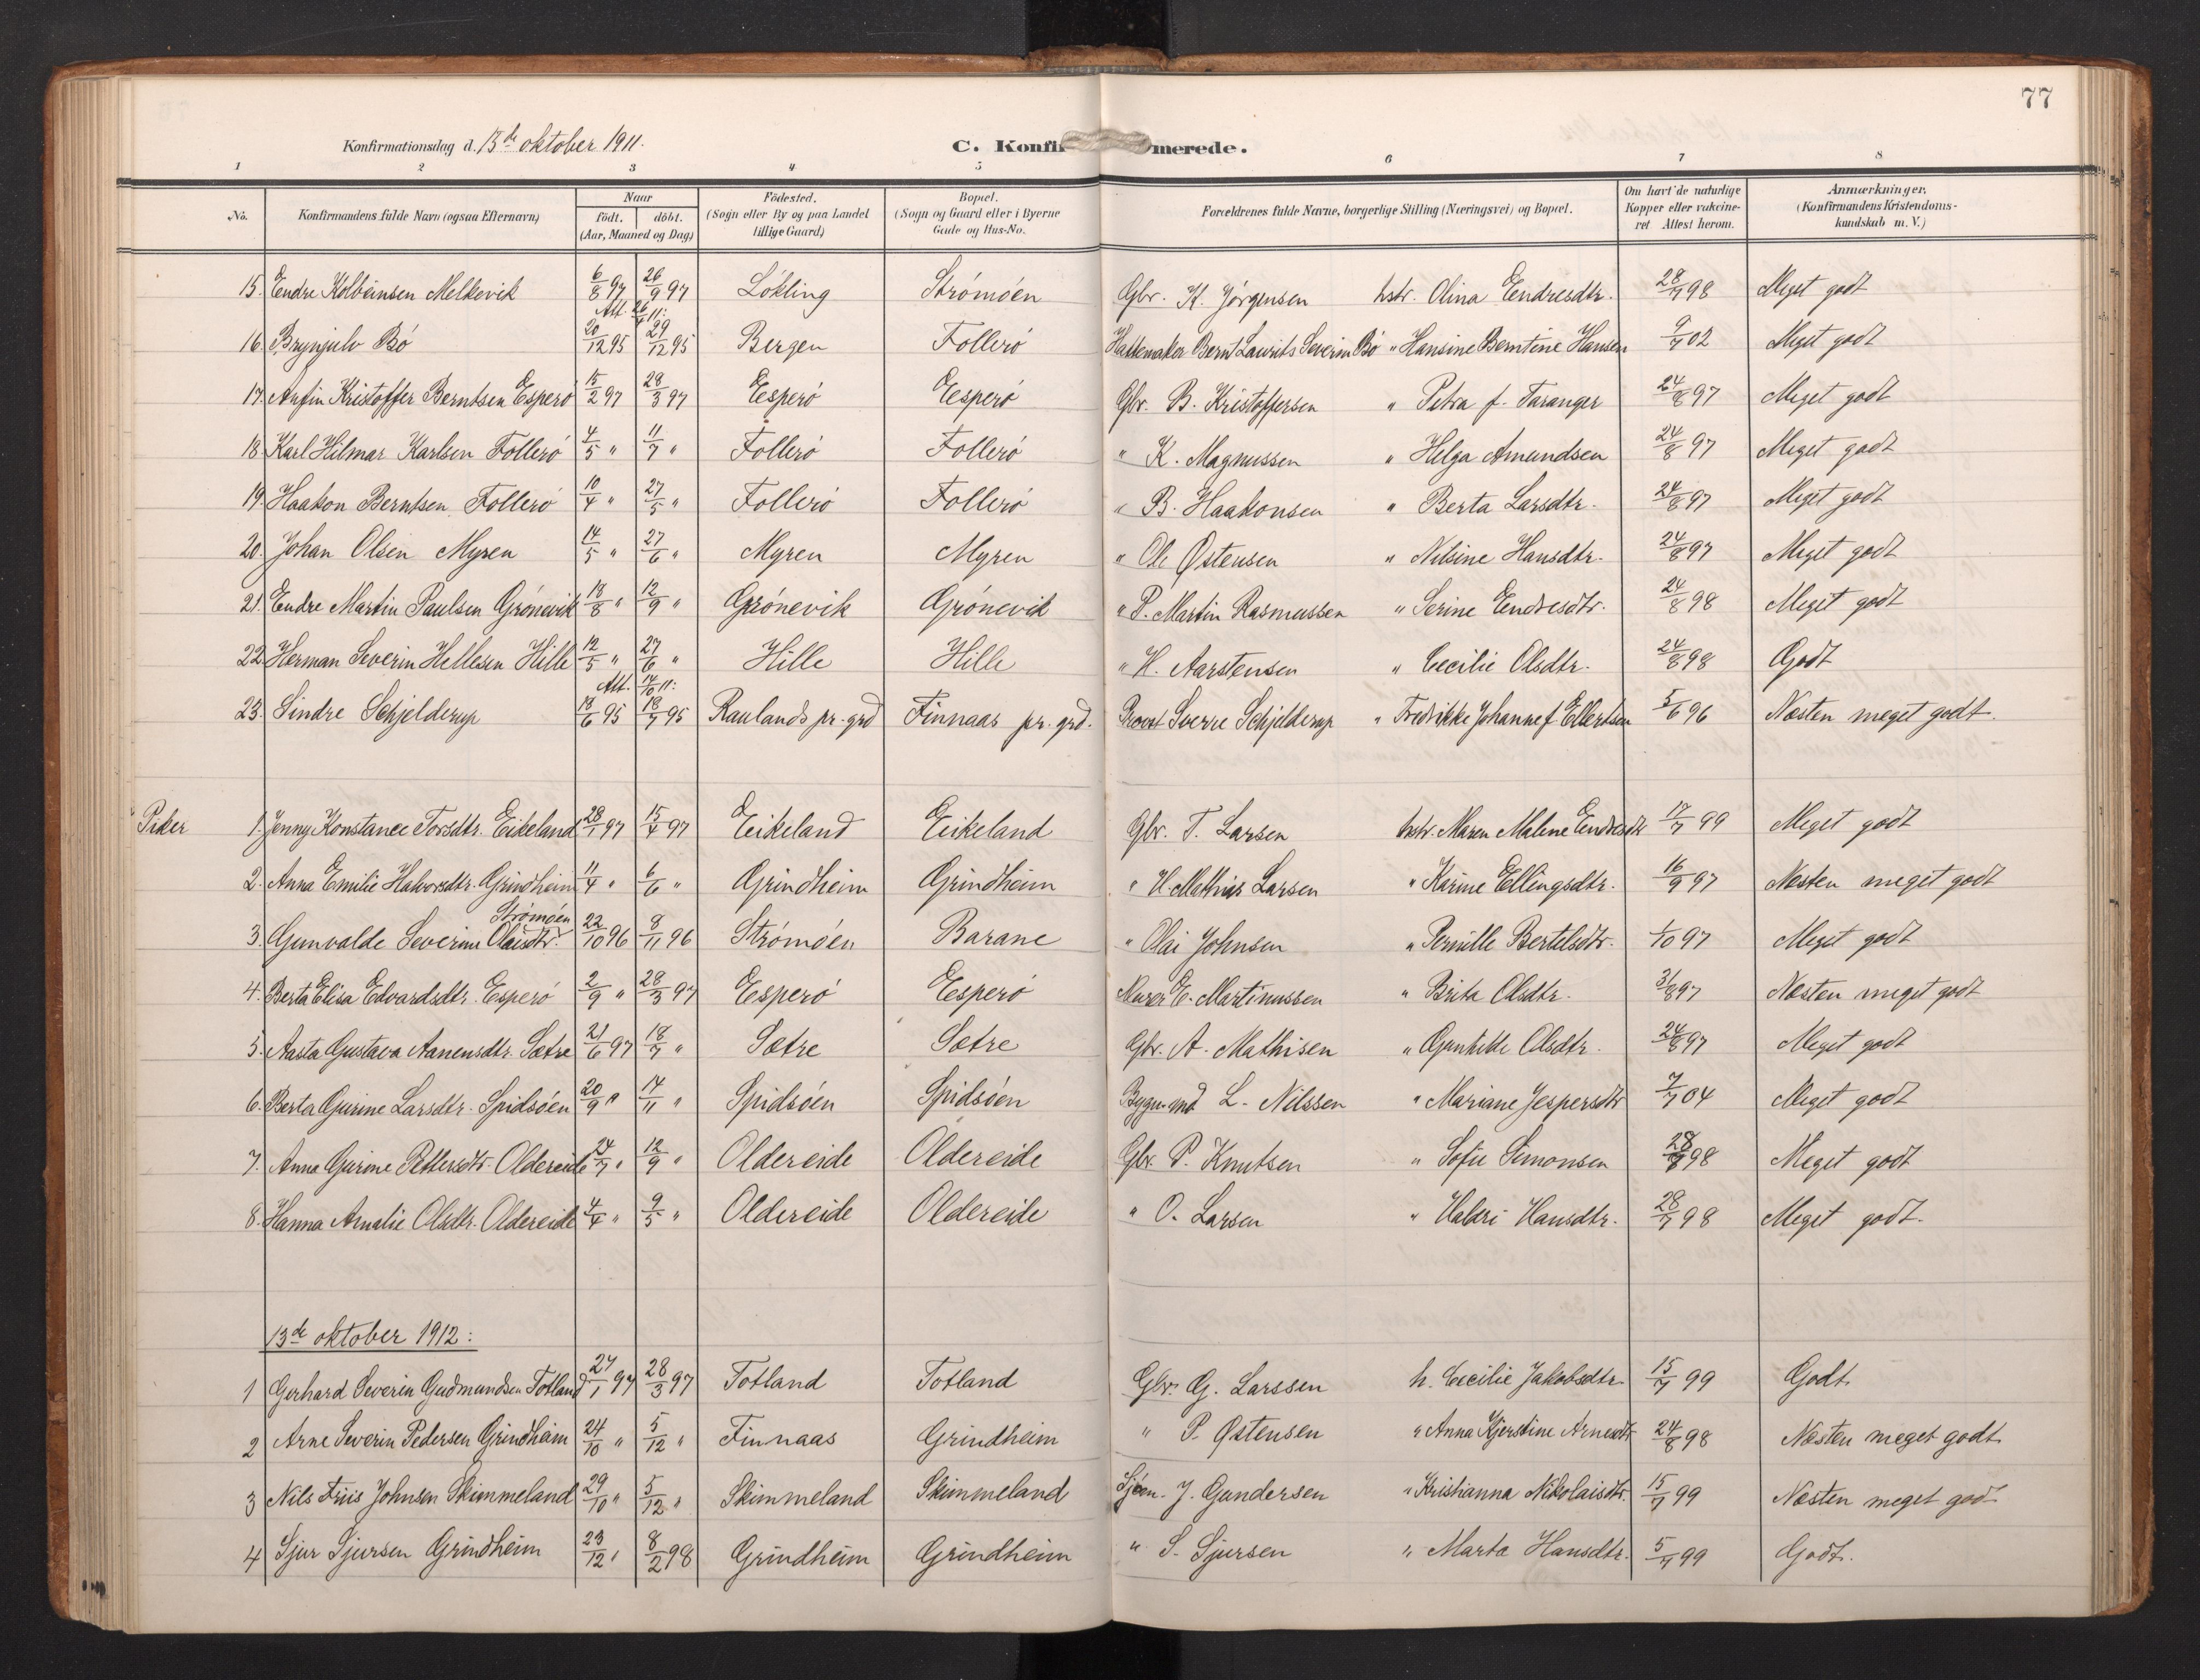 77
Konfirmationsdag d. 15de oktober 1911.
C. Konfir merede.
1 2 3 4 5 6 7 8
No. Konfirmandens fulde Navn (ogsaa Efternavn) Naar født. døbt. (Aar, Maaned og Dag) Fødested. (Sogn eller By og paa Landet tillige Gaard) Bopæl. (Sogn og Gaard eller i Byerne Gade og Hus-No. Forældrenes fulde Navne, borgerlige Stilling (Næringsvei) og Bopæl. Om havt de naturlige Kopper eller vakcineret Attest herom. Anmærkninger. (Konfirmandens Kristendomskundskab m. V.)
15. Endre Kolbeinsen Melkevik 6/8 97 26/9 97 Løkling Strømøen Gbr. K. Jørgensen hstr. Olina Eendresdtr. 28/7 98 Meget godt
Att. 26/4 11:
16. Brynjulv Bø 20/12 95 29/12 95 Bergen Follerø Hattemaker Bernt Laurits Severin Bø " Hansine Berntine Hansen 9/7 02 Meget godt
17. Anfin Kristoffer Berntsen Esperø 15/2 97 28/3 97 Esperø Esperø Gbr. B. Kristoffersen " Petra f. Taranger 24/8 97 Meget godt
18. Karl Hilmar Karlsen Follerø 4/5 " 11/7 " Follerø Follerø " K. Magnussen " Helga Amundsen 24/8 97 Meget godt
19. Haakon Berntsen Follerø 10/4 " 27/5 " Follerø Follerø " B. Haakonsen " Berta Larsdtr. 24/8 97 Meget godt
20. Johan Olsen Myren 14/5 " 27/6 " Myren Myren " Ole Østensen " Nilsine Hansdtr. 24/8 97 Meget godt
21. Endre Martin Paulsen Grønevik 18/8 " 12/9 " Grønevik Grønevik " P. Martin Rasmussen " Serine Eendresdtr. 24/8 98 Meget godt
22. Herman Severin Hellesen Hille 12/5 " 27/6 " Hille Hille " H. Aarstensen " Cecilie Olsdtr. 24/8 98 Godt
Att. 14/10 11:
23. Sindre Schjelderup 18/6 95 18/7 95 Raulands pr.grd Finnaas pr. grd. Provst Sverre Schjelderup " Fredrikke Johanne f Ellertsen 5/6 96 Næsten meget godt.
Piker 1. Jenny Konstance Torsdtr. Eikeland 28/1 97 15/4 97 Eikeland Eikeland Gbr. T. Larsen hstr. Maren Malene Eendresdtr 17/7 99 Meget godt
2. Anna Emilie Halvorsdtr. Grindheim 11/4 " 6/6 " Grindheim Grindheim " H. Mathias Larsen " Karine Ellingsdtr. 16/9 97 Næsten meget godt
Strømøen
3. Gunvalde Severine Olaisdtr. 22/10 96 8/11 96 Strømøen Barane " Olai Johnsen " Pernille Bertelsdtr. 1/10 97 Meget godt
4. Berta Elisa Edvardsdtr. Esperø 2/9 " 28/3 97 Esperø Esperø Murer E. Martinussen " Brita Olsdtr. 31/8 97 Næsten meget godt
5. Aasta Gustava Aanensdtr. Sætre 21/6 97 18/7 " Sætre Sætre Gbr. A. Mathisen " Gunhilde Olsdtr. 24/8 97 Meget godt
6. Berta Gurine Larsdtr. Spidsøen 20/9 " 14/11 " Spidsøen Spidsøen Bygn.md L. Nilssen " Mariane Jespersdtr 7/7 04 Meget godt
7. Anna Gurine Pettersdtr. Oldereide 24/7 " 12/9 " Oldereide Oldereide Gbr. P. Knutsen " Sofie Simonsen 28/7 98 Meget godt
8. Hanna Amalie Olsdtr. Oldereide 4/4 " 9/5 " Oldereide Oldereide " O. Larsen " Valdri Hansdtr. 28/7 98 Meget godt.
13de oktober 1912:
1 Gerhard Severin Gudmundsen Totland 27/1 97 28/3 97 Totland Totland Gbr. G. Larssen h. Cecilie Jakobsdtr 15/7 99 Godt
2 Arne Severin Pedersen Grindheim 24/10 " 5/12 " Finnaas Grindheim " P. Østensen " Anna Kjerstine Arnesdtr 24/8 98 Næsten meget godt
3 Nils Friis Johnsen Skimmeland 29/10 " 5/12 " Skimmeland Skimmeland Sjøm. J. Gundersen " Kristianna Nikolaisdtr. 15/7 99 Næsten meget godt
4 Sjur Sjursen Grindheim 23/12 " 8/2 98 Grindheim Grindheim " S. Sjursen " Marta Hansdtr. 5/7 99 Godt.